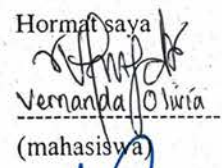 Hormat saya
Vernanda Olivia
(mahasiswa)